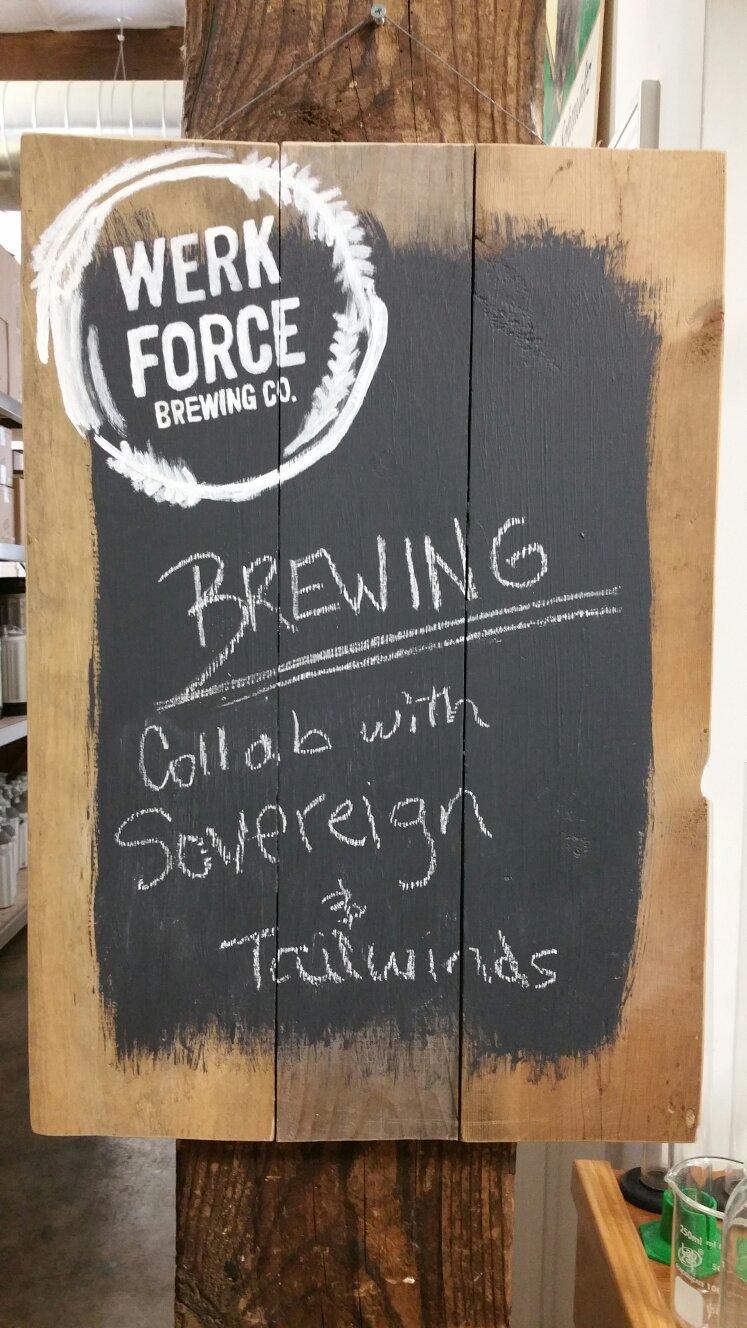 WERK
FORCE
BREWING CO.
BREWING
Collab with
Sovereign
&
Tailwinds
250ml